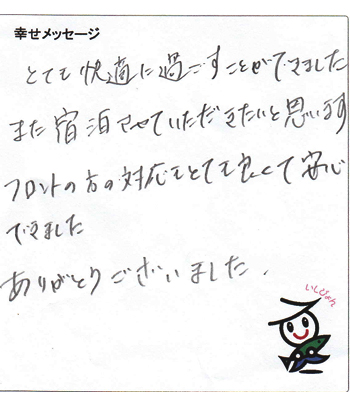 幸せメッセージ
とても快適に過ごすことができました
また宿泊させていただきたいと思います
フロントの方の対応もとても良くて安心
できました
ありがとうございました．
いしぴょん